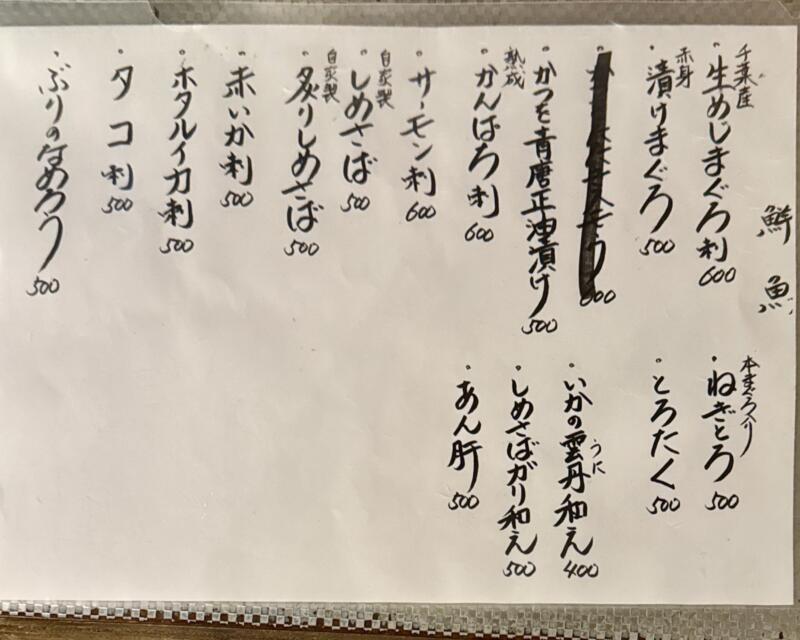 鮮魚
千葉産
・生めじまぐろ刺 600
赤身
・漬けまぐろ 500
600
・かつを青唐正油漬け 500
熟成
・かんぱち刺 600
・サーモン刺 600
自家製
・しめさば 500
自家製
・炙りしめさば 500
・赤いか刺 500
・ホタルイカ刺 500
・タコ刺 500
・ぶりのなめろう 500
本まぐろ入り
・ねぎとろ 500
・とろたく 500
・いかの雲丹和え 400
うに
・しめさばガリ和え 500
・あん肝 500